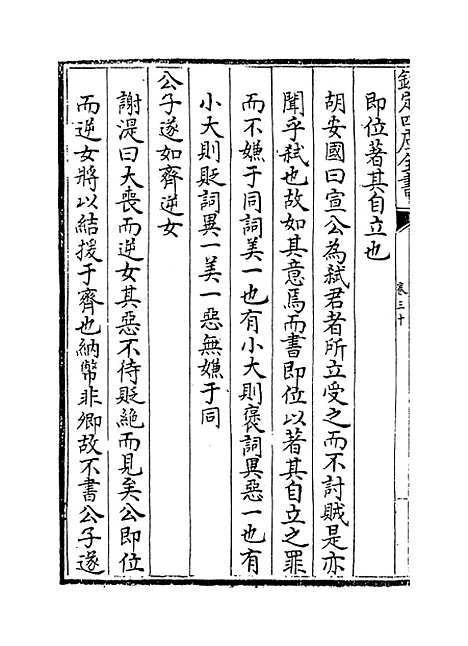 欽定四庫全書
卷三十
即位著其自立也
胡安國曰宣公為弑君者所立受之而不討賊是亦
聞乎弑也故如其意焉而書即位以著其自立之罪
而不嫌于同詞美一也有小大則褒詞異惡一也有
小大則貶詞異一美一惡無嫌于同
公子遂如齊逆女
謝湜曰大喪而逆女其惡不待貶絶而見矣公即位
而逆女將以結援于齊也納幣非卿故不書公子遂